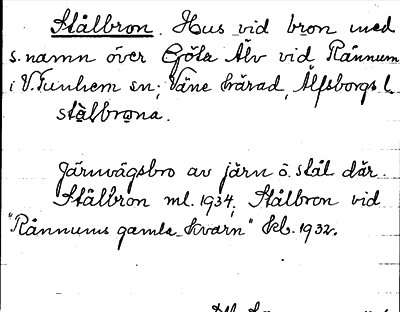 Stålbron. Hus vid bron med
s. namn över Göta Älv vid Rånnum
i V. Tunhem sn; Väne härad, Älfsborgs l.
stålbrona.
Järnvägsbro av järn o. stål där.
Stålbron ml. 1934, Stålbron vid
"Rånnums gamla kvarn" hl. 1932.